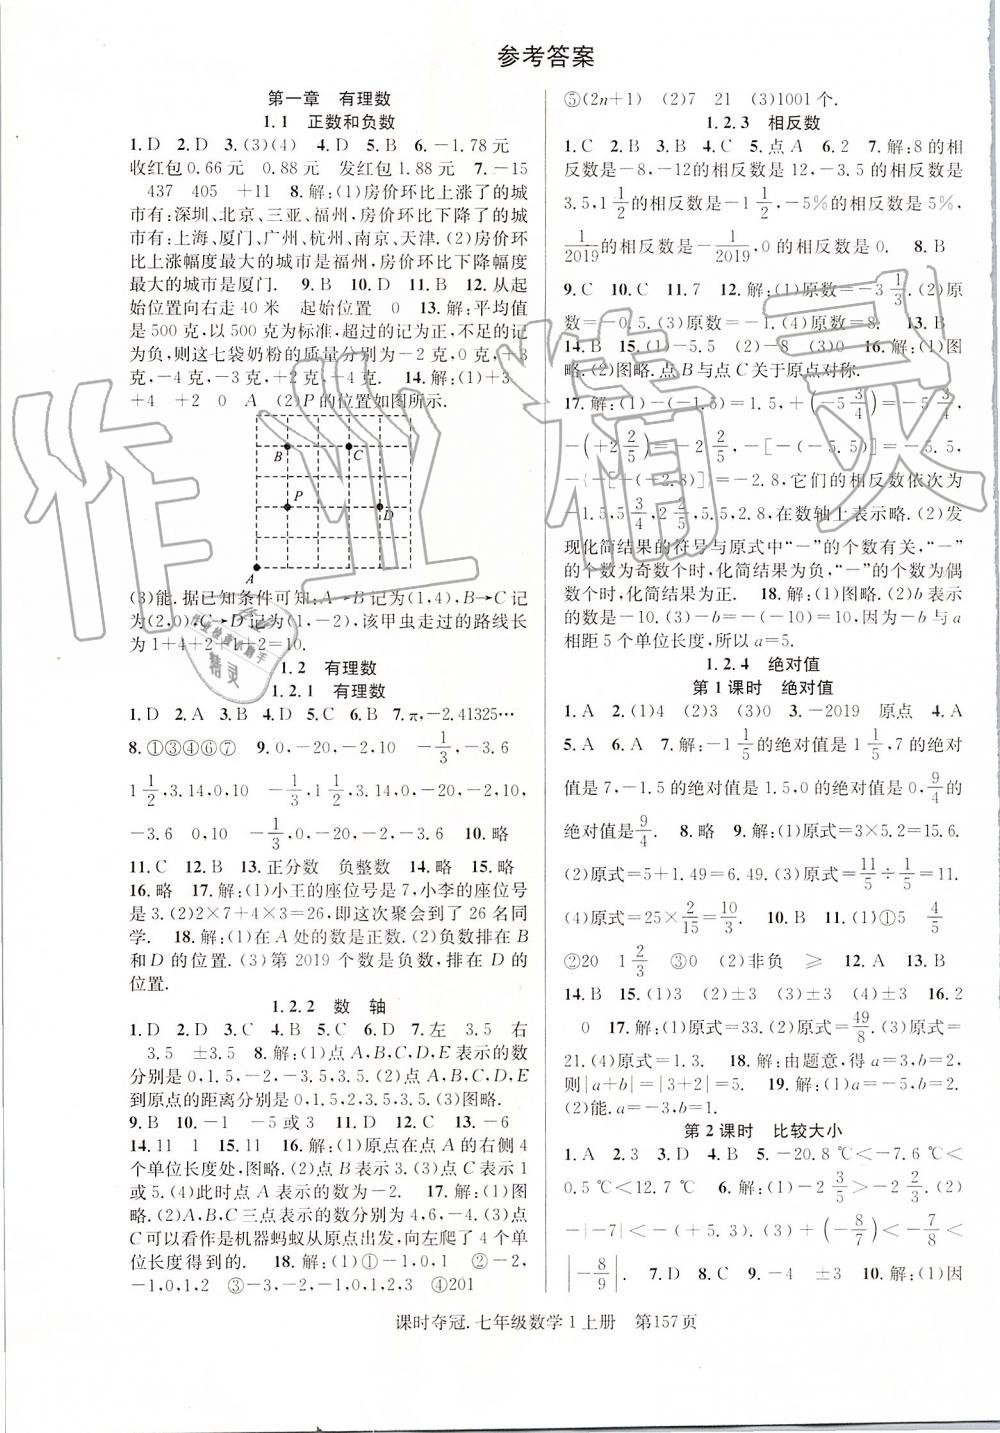 参考答案
第一章　有理数
1.1　正数和负数
1.D　2.D　3.(3)(4)　4.D　5.B　6.－1.78元
收红包0.66元　0.88元　发红包1.88元　7.－15
437　405　＋11　8.解:(1)房价环比上涨了的城
市有:深圳、北京、三亚、福州,房价环比下降了的城
市有:上海、厦门、广州、杭州、南京、天津.(2)房价环
比上涨幅度最大的城市是福州,房价环比下降幅度
最大的城市是厦门.　9.B　10.D　11.B　12.从起
始位置向右走40米　起始位置　0　13.解:平均值
是500克,以500克为标准,超过的记为正,不足的记
为负,则这七袋奶粉的质量分别为－2克,0克,＋3
克,－4克,－3克,－5克,＋4克.　14.解:(1)＋3
＋4　＋2　0　A　(2)P的位置如图所示.
B　C
P　D
A
(3)能.据已知条件可知:A→B记为(1,4),B→C记
为(2,0),C→D记为(1,－2),该甲虫走过的路线长
为1＋4＋2＋1＋2＝10.
1.2　有理数
1.2.1　有理数
1.D　2.A　3.B　4.D　5.C　6.B　7.π,－2.41325…
8.①③④⑥⑦　9.0,－20,－2,10　－1/3,－3.6
1 1/2,3.14,0,10　－1/3,1 1/2,3.14,0,－20,－2,
－3.6　0,10　－1/3,0,－20,－2,－3.6　10.略
11.C　12.B　13.正分数　负整数　14.略　15.略
16.略　17.解:(1)小王的座位号是7,小李的座位号
是3.(2)2×7＋4×3＝26,即这次聚会到了26名同
学.　18.解:(1)在A处的数是正数.(2)负数排在B
和D的位置.(3)第2019个数是负数,排在D的
位置.
1.2.2　数　轴
1.D　2.D　3.C　4.B　5.C　6.D　7.左　3.5　右
3.5　±3.5　8.解:(1)点A,B,C,D,E表示的数
分别是0,1.5,－2,－3.5,3.5.(2)点A,B,C,D,E
到原点的距离分别是0,1.5,2,3.5,3.5.(3)图略.
9.B　10.－1　－5或3　11.D　12.D　13.－6
14.11　1　15.11　16.解:(1)原点在点A的右侧4
个单位长度处,图略.(2)点B表示3.(3)点C表示1
或5.(4)此时点A表示的数为－2.　17.解:(1)图
略.(2)A,B,C三点表示的数分别为4,6,－4.(3)点
C可以看作是机器蚂蚁从原点出发,向左爬了4个单
位长度得到的.　18.解:(1)①－1,0,1　②－2,
－1,0,1,2　③－3,－2,－1,0,1,2,3　④201
⑤(2n＋1)　(2)7　21　(3)1001个.
1.2.3　相反数
1.C　2.B　3.B　4.C　5.点A　6.2　7.解:8的相
反数是－8,－12的相反数是12,－3.5的相反数是
3.5,1 1/2的相反数是－1 1/2,－5%的相反数是5%,
1/2019的相反数是－1/2019,0的相反数是0.　8.B
9.C　10.C　11.7　12.解:(1)原数＝－3 1/3.(2)原
数＝－0.5.(3)原数＝1.2.(4)原数＝8.　13.B
14.B　15.(1)－5.5　(2)－8　(3)0　16.解:(1)图
略.(2)图略.点B与点C关于原点对称.
17.解:(1)－(－1.5)＝1.5,＋(－5 3/4)＝－5 3/4,
－(＋2 2/5)＝－2 2/5,－[－(－5.5)]＝－5.5,
－{－[－(－2.8)]}＝2.8,它们的相反数依次为
－1.5,5 3/4,2 2/5,5.5,－2.8,在数轴上表示略.(2)发
现化简结果的符号与原式中“－”的个数有关,“－”
的个数为奇数个时,化简结果为负,“－”的个数为偶
数个时,化简结果为正.　18.解:(1)图略.(2)b表示
的数是－10.(3)因为－b表示的数是10,因为－b与a
相距5个单位长度,所以a＝5.
1.2.4　绝对值
第1课时　绝对值
1.A　2.(1)4　(2)3　(3)0　3.－2019　原点　4.A
5.A　6.A　7.解:－1 1/5的绝对值是1 1/5,7的绝对
值是7,－1.5的绝对值是1.5,0的绝对值是0,9/4的
绝对值是9/4.　8.略　9.解:(1)原式＝3×5.2＝15.6.
(2)原式＝5＋1.49＝6.49.(3)原式＝11/5÷1/5＝11.
(4)原式＝25×2/15＝10/3.　10.B　11.(1)①5　4/5
②20　1 2/3　③0　(2)非负　≥　12.A　13.B
14.B　15.(1)3　(2)±3　(3)±3　16.2
0　17.解:(1)原式＝33.(2)原式＝49/8.(3)原式＝
21.(4)原式＝1.3.　18.解:由题意,得a＝3,b＝2,
则|a＋b|＝|3＋2|＝5.　19.解:(1)a＝2,b＝1.
(2)能.a＝3,b＝1.
第2课时　比较大小
1.A　2.3　3.D　4.B　5.－20.8℃＜－7.6℃＜
0.5℃＜12.7℃　6.解:(1)－2 3/5＞－2 2/3.(2)
－|－7|＜－(＋5.3).(3)＋(－8/7)＜－7/8＜
|－8/9|.　7.D　8.C　9.－4　±3　10.解:(1)因
课时夺冠.七年级数学1上册　第157页
作业精灵